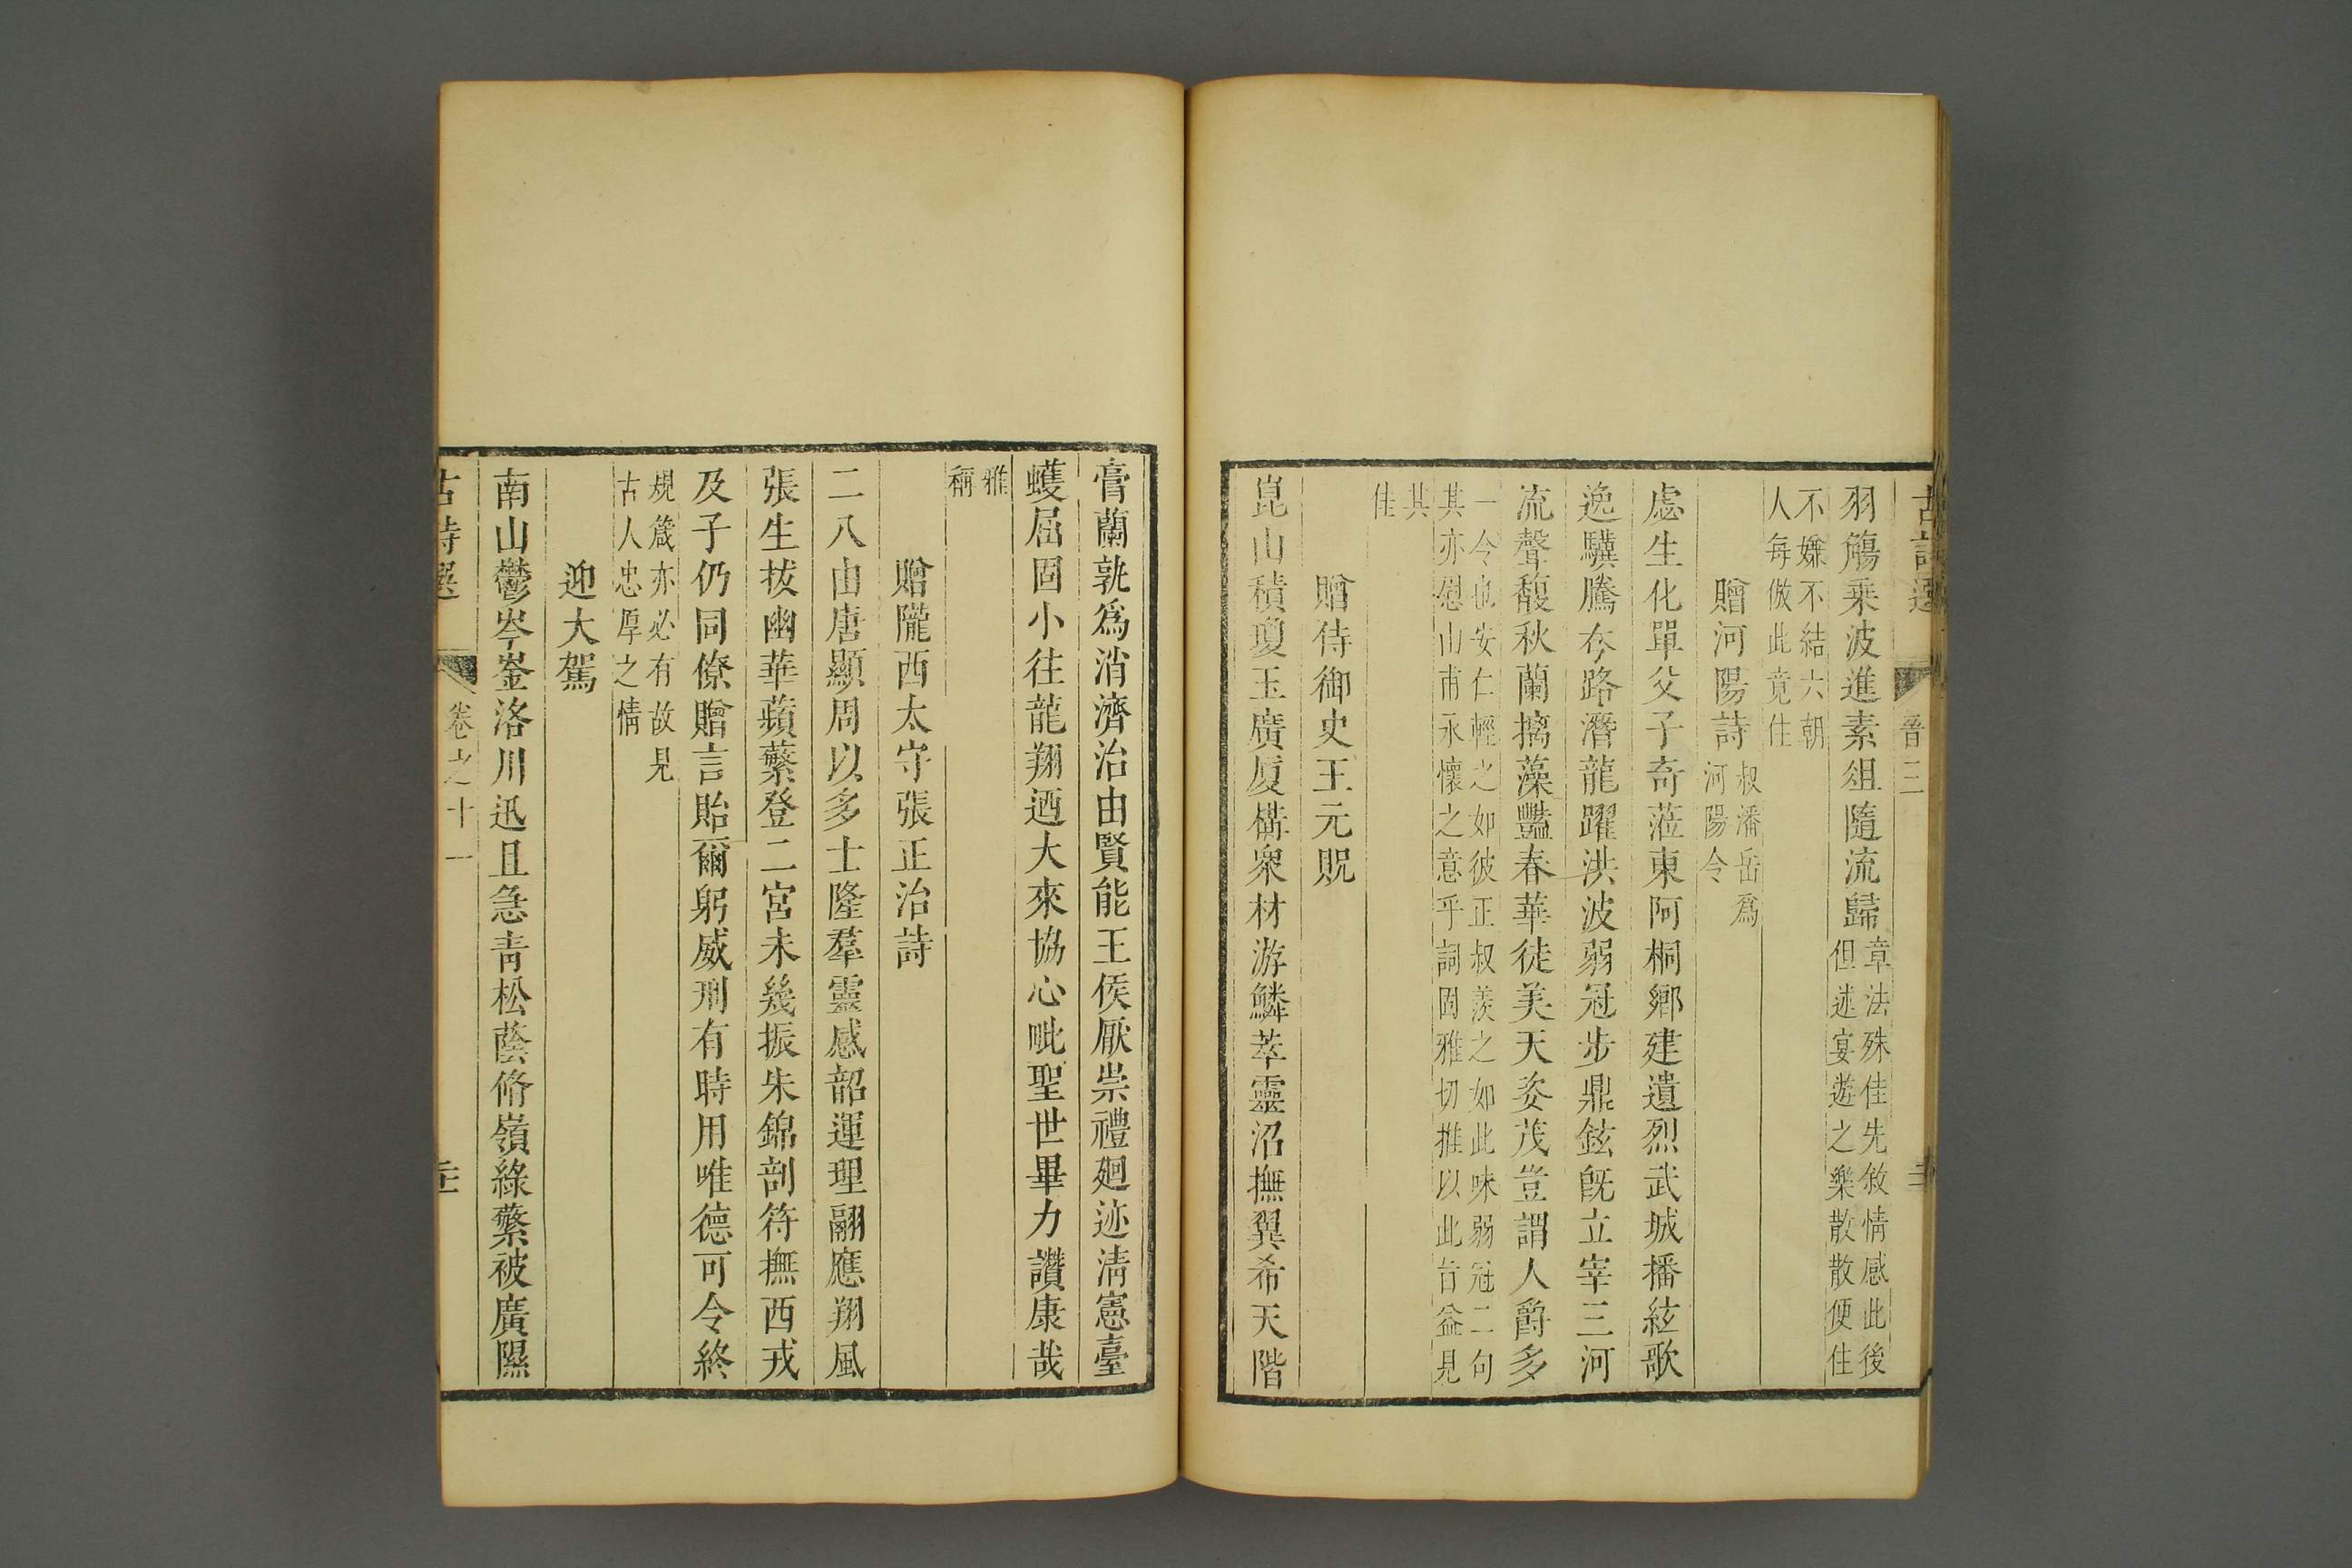 古詩選 晉三
羽觴乗波進素俎隨流歸章法殊佳先敘情感此後
但述宴遊之樂散散便住
不嫌不結六朝
人每倣此竟住
贈河陽詩叔潘岳爲
河陽令
虙生化單父子奇蒞東阿桐鄉建遺烈武城播絃歌
逸驥騰夳路潛龍躍洪波弱冠步鼎鉉既立宰三河
流聲馥秋蘭摛藻豔春華徒美天姿茂豈謂人爵多
一令也安仁輕之如彼正叔羨之如此味弱冠二句
其亦慰山甫永懷之意乎詞固雅切推以此旨益見
其
佳
贈侍御史王元貺
崑山積瓊玉廣厦構衆材游鱗萃靈沼撫翼希天階
膏蘭孰爲消濟治由賢能王侯厭崇禮廻迹清憲臺
蠖屈固小往龍翔迺大來協心毗聖世畢力讚康哉
雅
稱
贈隴西太守張正治詩
二八由唐顯周以多士隆羣靈感韶運理翮應翔風
張生拔幽華蘋蘩登二宮未幾振朱錦剖符撫西戎
及子仍同僚贈言貽爾躬威刑有時用唯德可令終
規箴亦必有故見
古人忠厚之情
迎大駕
南山鬱岑崟洛川迅且急青松蔭脩嶺綠蘩被廣隰
古詩選 卷之十一